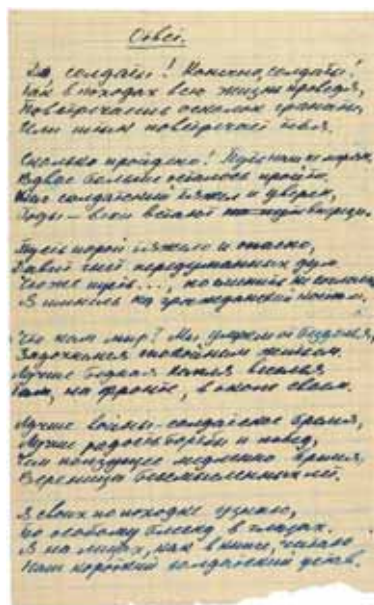 Ответ.
Да, солдаты! Конечно, солдаты!
Так в походах всю жизнь проведя,
Повстречаешь осколок гранаты,
Или штык повстречает тебя.
Сколько пройдено! Путь наш не
Вдвое больше осталось пройти.
Шаг солдатский тяжел и уверен,
Годы – вехи встают
Пусть порой тяжело и опасно,
Давит гнёт передуманных дум.
Что же, пусть..., но шинель не согласен
Я шинель на гражданский костюм.
Что нам мир? Мы умрем от безделья,
Задохнемся спокойным житьем.
Лучше бедная капля веселья
Там, на фронте, в окопе своем.
Лучше войны – солдатское бремя,
Лучше радость борьбы и побед,
Чем ползущее медленно время,
Вереница бессмысленных лет.
Я своих по походке узнаю,
По особому блеску в глазах.
Я на лицах, как в книге, читаю
Наш короткий солдатский устав.